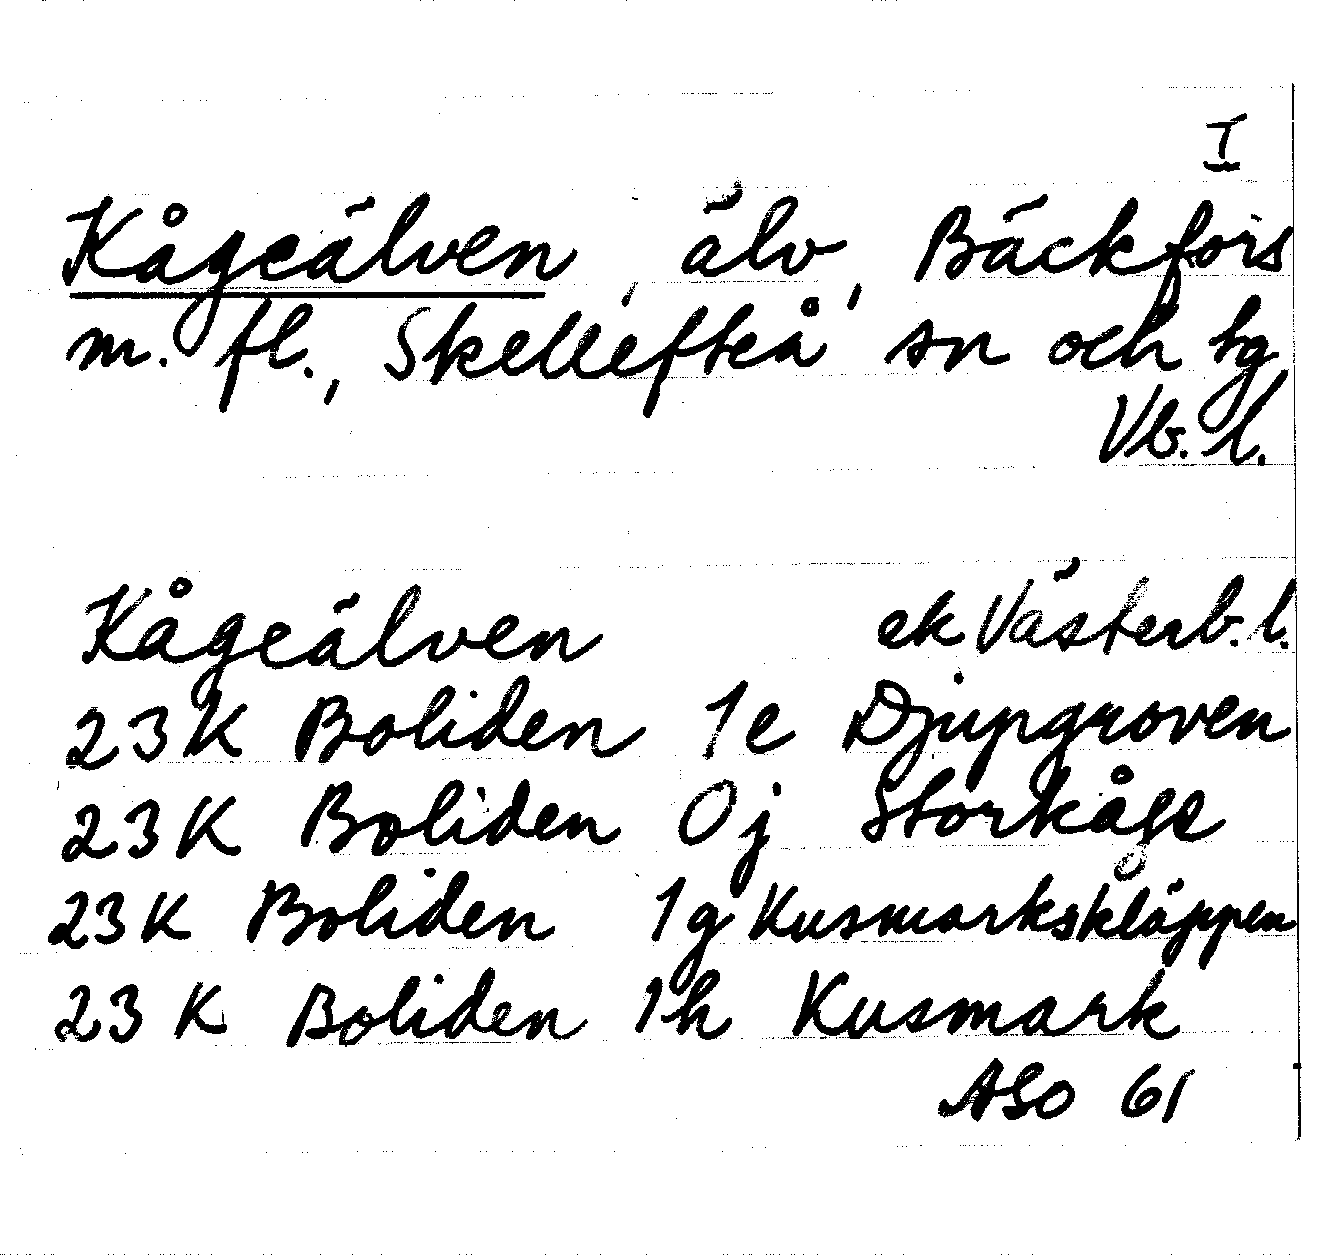 I
Kågeälven, älv, Bäckfors
m. fl., Skellefteå sn och tg
Vb. l.
Kågeälven ek Västerb. l.
23K Boliden 1e Djupgroven
23K Boliden 0j Storkåge
23K Boliden 1g Kusmarkskläppen
23K Boliden 1h Kusmark
ASO 61